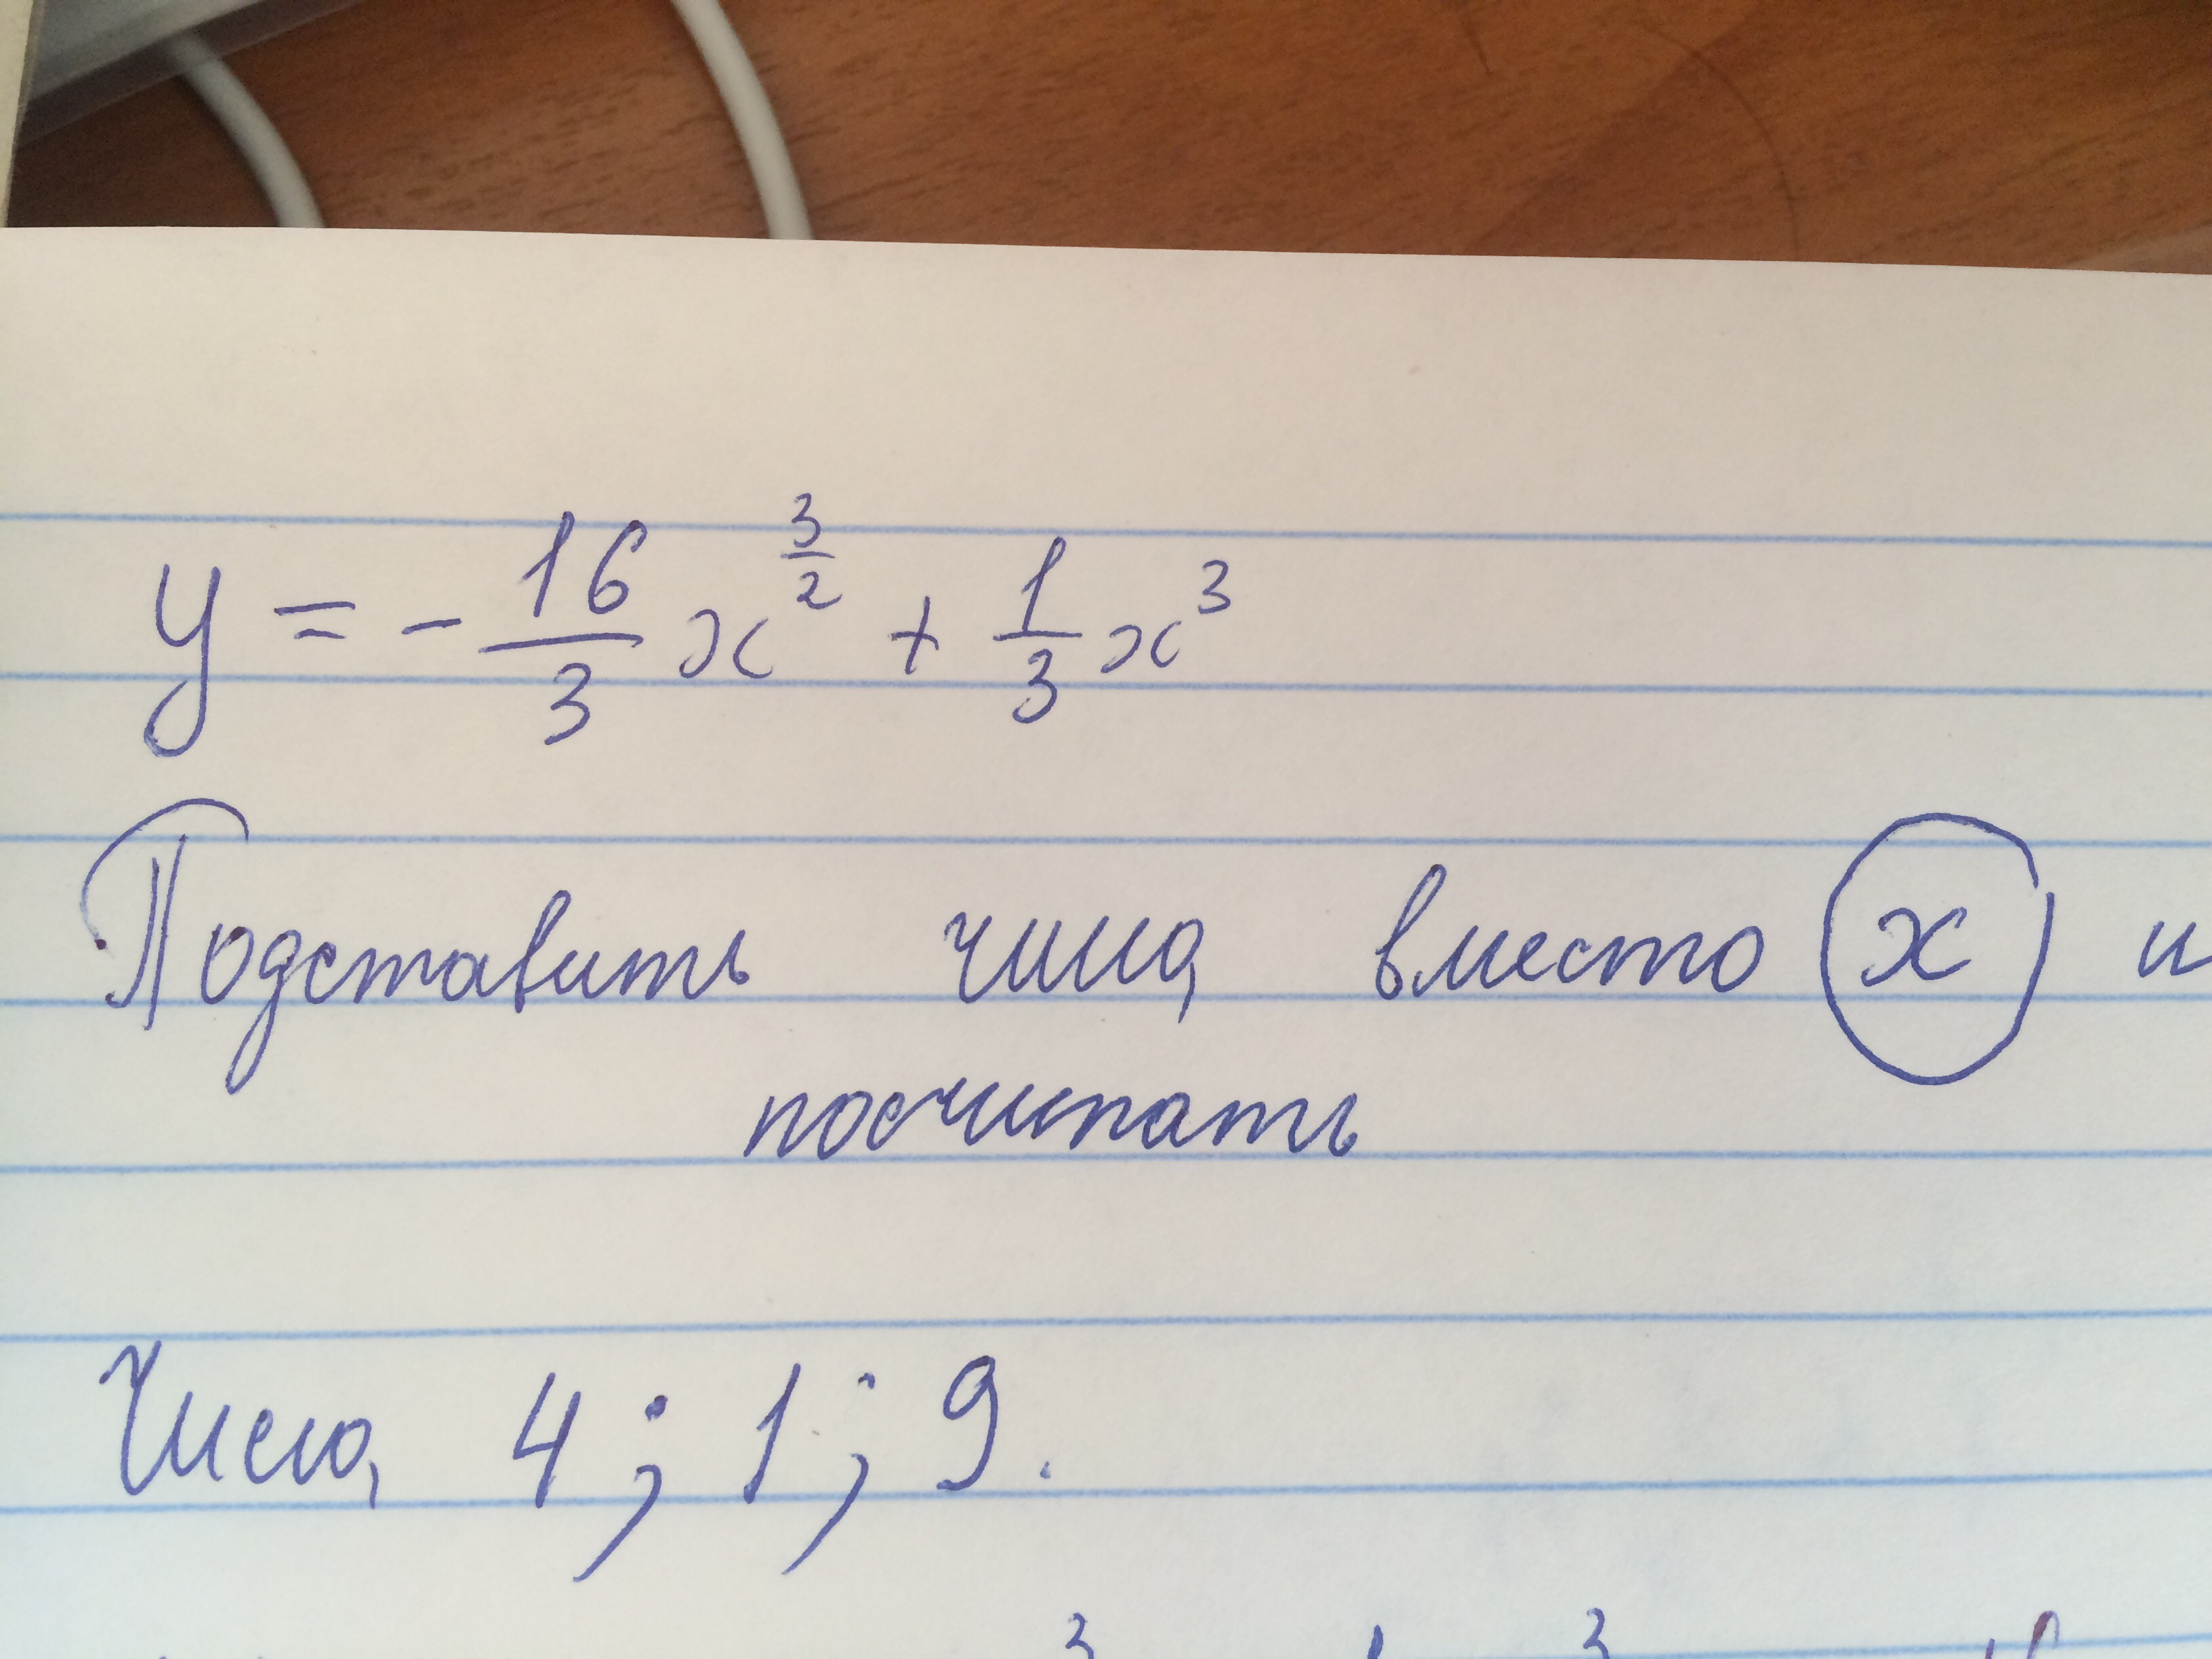 y = -\frac{16}{3} x^{\frac{3}{2}} + \frac{1}{3} x^3
Подставить числа вместо x и
посчитать
Числа 4; 1; 9.